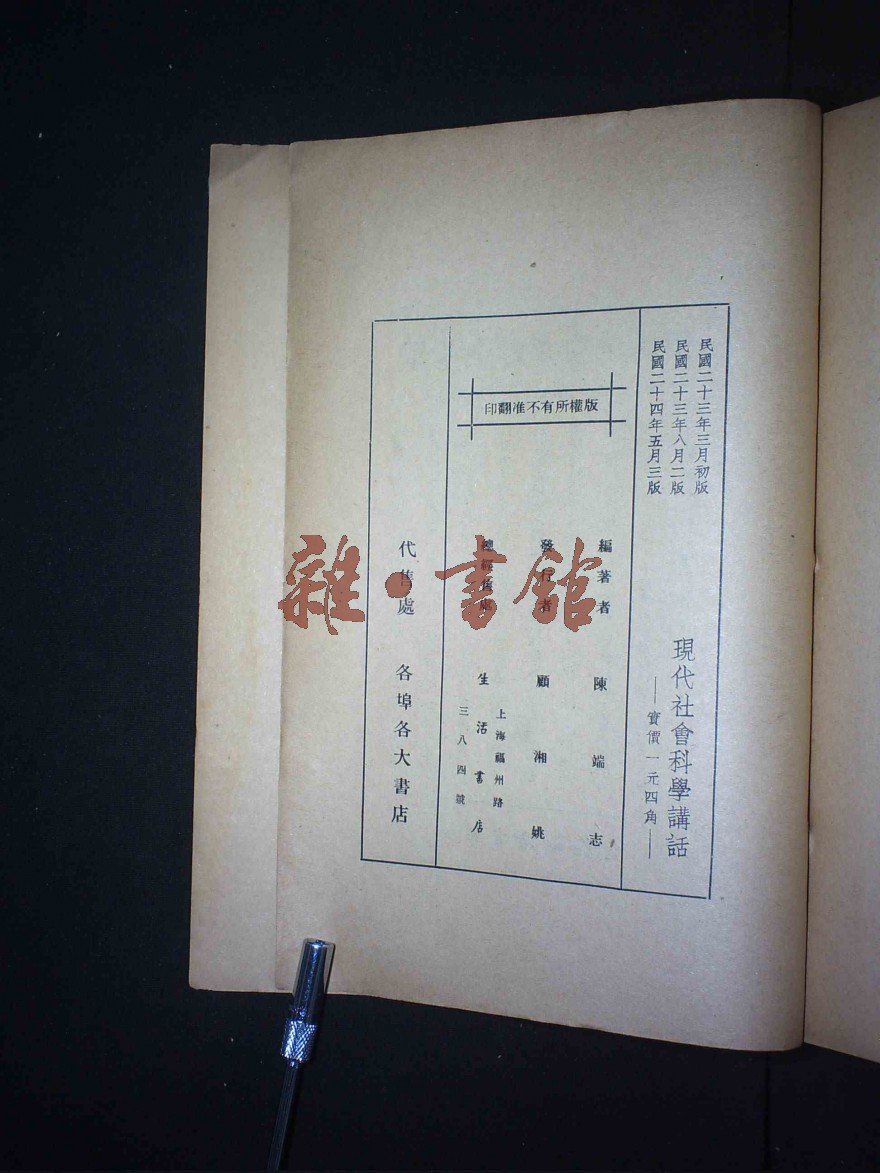 民國二十三年三月初版
民國二十三年八月二版
民國二十四年五月三版
現代社會科學講話
——實價一元四角——
版權所有不准翻印
編著者 陳端志
發行者 顧湘姚
總經售處 生活書店
上海福州路
三八四號
代售處 各埠各大書店
雜·書館